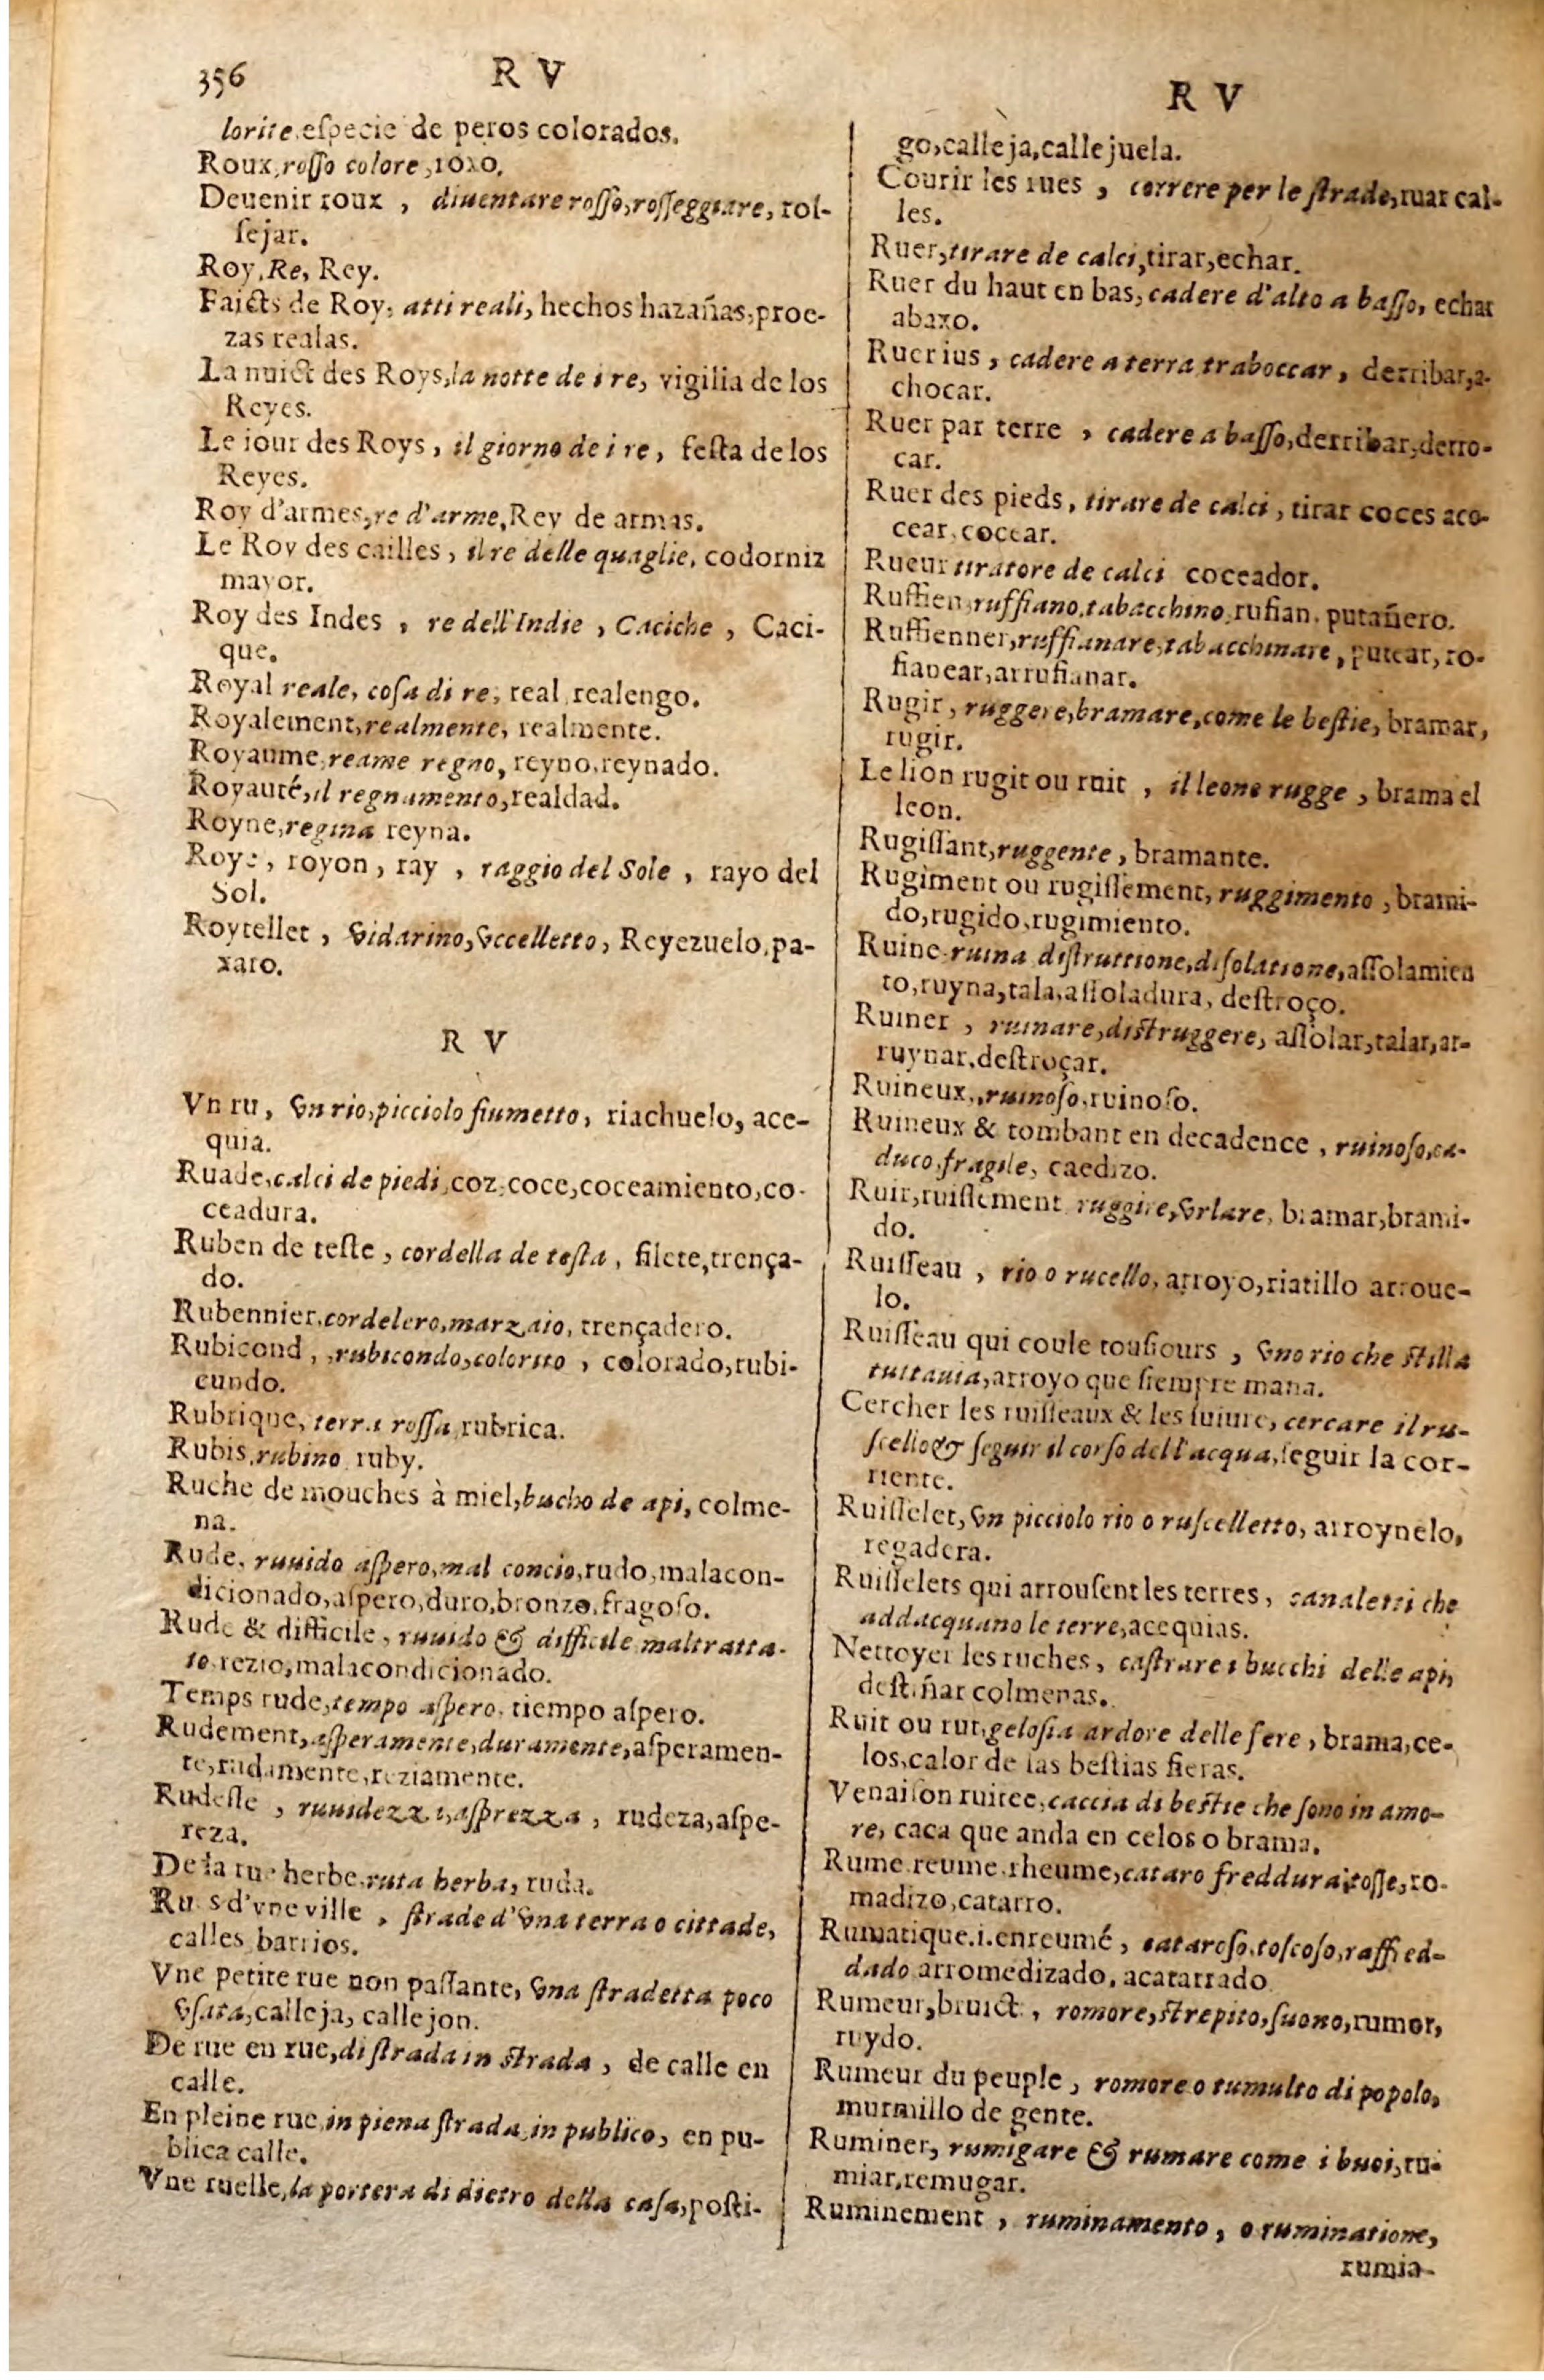 356
R V
lorite, eſpecie de peros colorados.
Roux, roſſo colore, roxo.
Deuenir roux, diuentare roſſo, roſſeggiare, roſ-
ſejar.
Roy, Re, Rey.
Faicts de Roy, atti reali, hechos hazañas, proe-
zas realas.
La nuict des Roys, la notte de i re, vigilia de los
Reyes.
Le iour des Roys, il giorno de i re, feſta de los
Reyes.
Roy d'armes, re d'arme, Rey de armas.
Le Roy des cailles, il re delle quaglie, codorniz
mayor.
Roy des Indes, re dell'Indie, Caciche, Caci-
que.
Royal reale, coſa di re, real, realengo.
Royalement, realmente, realmente.
Royaume, reame regno, reyno, reynado.
Royauté, il regnamento, realdad.
Royne, regina reyna.
Roye, royon, ray, raggio del Sole, rayo del
Sol.
Roytellet, vidarino, vccelletto, Reyezuelo, pa-
xaro.
R V
Vn ru, vn rio, picciolo fiumetto, riachuelo, ace-
quia.
Ruade, calci de piedi, coz, coce, coceamiento, co-
ceadura.
Ruben de teſte, cordella de teſta, filete, trença-
do.
Rubennier, cordelero, marzaio, trençadero.
Rubicond, rubicondo, colorito, colorado, rubi-
cundo.
Rubrique, terra roſſa, rubrica.
Rubis, rubino, ruby.
Ruche de mouches à miel, bucho de api, colme-
na.
Rude, ruuido aſpero, mal concio, rudo, malacon-
dicionado, aſpero, duro, bronzo, fragoſo.
Rude & difficile, ruuido & difficile maltratta-
to, rezio, malacondicionado.
Temps rude, tempo aſpero, tiempo aſpero.
Rudement, aſperamente, duramente, aſperamen-
te, rudamente, reziamente.
Rudeſſe, ruuidezza, aſprezza, rudeza, aſpe-
reza.
De la rue herbe, ruta herba, ruda.
Rues d'vne ville, ſtrade d'vna terra o cittade,
calles barrios.
Vne petite rue non paſſante, vna ſtradetta poco
vſata, calleja, callejon.
De rue en rue, di ſtrada in ſtrada, de calle en
calle.
En pleine rue, in piena ſtrada, in publico, en pu-
blica calle.
Vne ruelle, la portera di dietro della caſa, poſti-
R V
go, calleja, callejuela.
Courir les rues, correre per le ſtrade, ruar cal-
les.
Ruer, tirare de calci, tirar, echar.
Ruer du haut en bas, cadere d'alto a baſſo, echar
abaxo.
Ruer ius, cadere a terra traboccar, derribar, a-
chocar.
Ruer par terre, cadere a baſſo, derribar, derro-
car.
Ruer des pieds, tirare de calci, tirar coces aco-
cear, cocear.
Rueur tiratore de calci coceador.
Ruffien, ruffiano, tabacchino, rufian, putañero.
Ruffienner, ruffianare, tabacchinare, putear, ro-
fianear, arrufianar.
Rugir, ruggere, bramare, come le beſtie, bramar,
rugir.
Le lion rugit ou ruit, il leone rugge, brama el
leon.
Rugiſſant, ruggente, bramante.
Rugiment ou rugiſſement, ruggimento, brami-
do, rugido, rugimiento.
Ruine ruina diſtruttione, diſolatione, aſſolamien
to, ruyna, tala, aſſoladura, deſtroço.
Ruiner, ruinare, diſtruggere, aſſolar, talar, ar-
ruynar, deſtroçar.
Ruineux, ruinoſo, ruinoſo.
Ruineux & tombant en decadence, ruinoſo, ca-
duco, fragile, caedizo.
Ruir, ruiſſement ruggire, vrlare, bramar, brami-
do.
Ruiſſeau, rio o rucello, arroyo, riatillo arroue-
lo.
Ruiſſeau qui coule touſiours, vno rio che ſtilla
tuttauia, arroyo que ſiempre mana.
Cercher les ruiſſeaux & les ſuiure, cercare il ru-
ſcello & ſeguir il corſo dell'acqua, ſeguir la cor-
riente.
Ruiſſelet, vn picciolo rio o ruſcelletto, arroynelo,
regadera.
Ruiſſelets qui arrouſent les terres, canaletti che
addacquano le terre, acequias.
Nettoyer les ruches, caſtrare i bucchi delle api,
deſtiñar colmenas.
Ruit ou rut, geloſia ardore delle fere, brama, ce-
los, calor de las beſtias fieras.
Venaiſon ruitee, caccia di beſtie che ſono in amo-
re, caca que anda en celos o brama.
Rume reume, rheume, cataro freddura, toſſe, ro-
madizo, catarro.
Rumatique.i.enreumé, cataroſo, toſcoſo, raffred-
dado arromedizado, acatarrado
Rumeur, bruict, romore, ſtrepito, ſuono, rumor,
ruydo.
Rumeur du peuple, romore o tumulto di popolo,
murmillo de gente.
Ruminer, rumigare & rumare come i buoi, ru-
miar, remugar.
Ruminement, ruminamento, o ruminatione,
rumia-